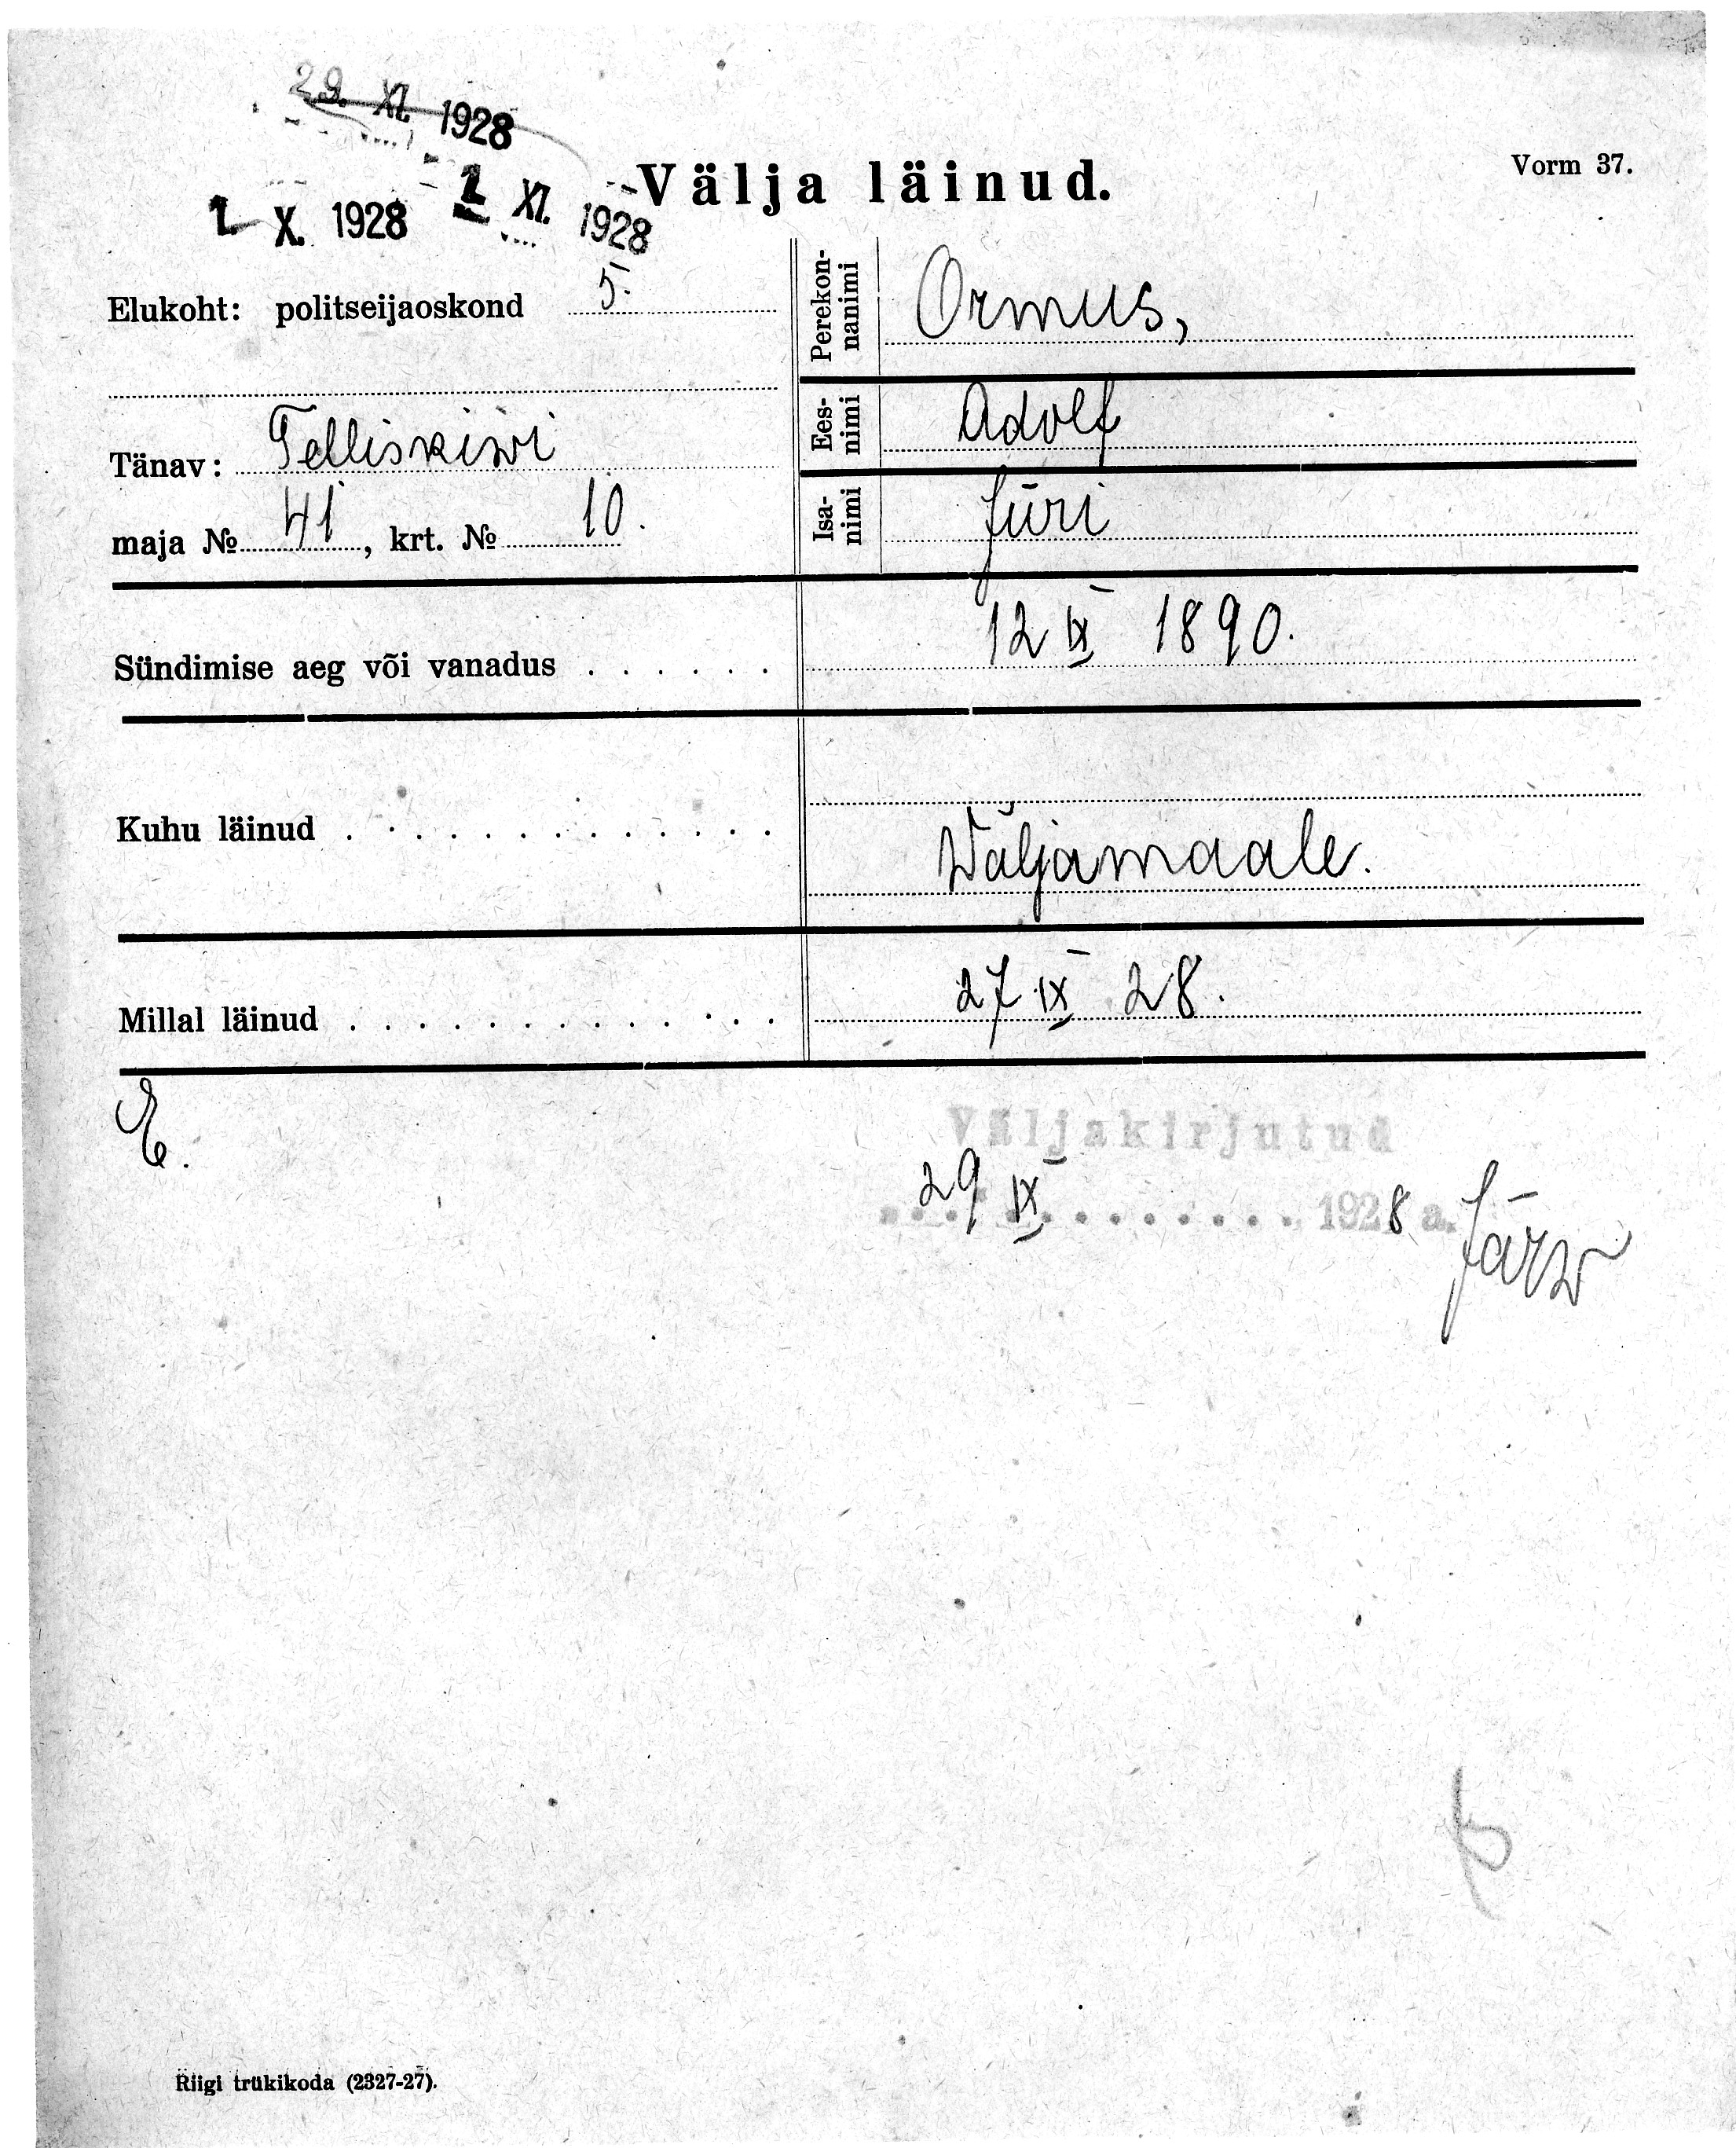 29. XI. 1928
Vorm 37.
Välja läinud.
1 X. 1928
1 XI. 1928
Elukoht: politseijaoskond 5.
Tänav: Telliskiwi
maja № 41, krt. № 10.
Perekon-
nanimi
Ormus,
Ees-
nimi
Adolf
Isa-
nimi
Jüri
Sündimise aeg või vanadus . . . . . . 12 IX 1890.
Kuhu läinud . . . . . . . . . . . . . Wäljamaale.
Millal läinud . . . . . . . . . . . . . 27 IX 28.
E.
Väljakirjutud
29 IX 1928 a.
Järw
Riigi trükikoda (2327-27).